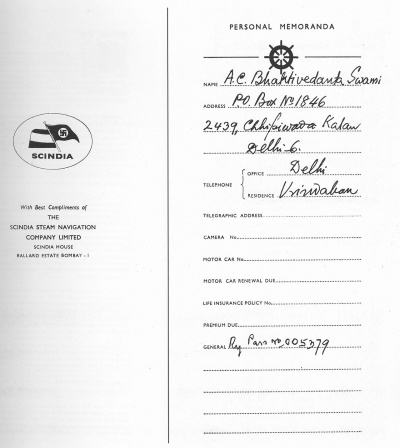 SCINDIA
With Best Compliments of
THE
SCINDIA STEAM NAVIGATION
COMPANY LIMITED
SCINDIA HOUSE
BALLARD ESTATE BOMBAY - 1
PERSONAL MEMORANDA
NAME A.C. Bhaktivedanta Swami
ADDRESS P.O. Box No 1846
2439, Chhipiwada Kalan
Delhi-6.
TELEPHONE
OFFICE Delhi
RESIDENCE Vrindaban
TELEGRAPHIC ADDRESS
CAMERA No.
MOTOR CAR No.
MOTOR CAR RENEWAL DUE
LIFE INSURANCE POLICY No.
PREMIUM DUE
GENERAL Pass No. 005379